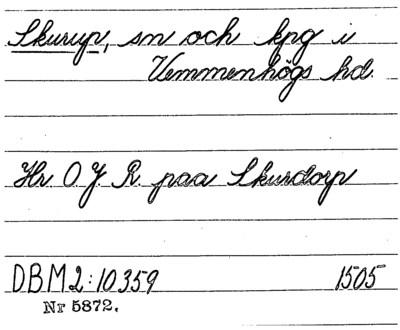 Skurup, sn och kpg i
Vemmenhögs hd.
Hr. O. J. R. paa Skurdorp
DBM2:10359 1505
Nr 5872.